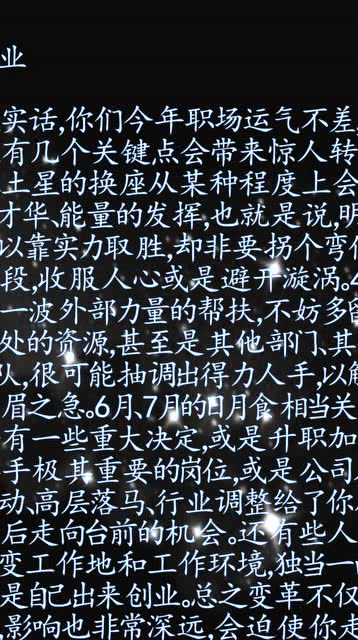 业
实话,你们今年职场运气不差
有几个关键点会带来惊人转
土星的换座从某种程度上会
才华、能量的发挥,也就是说,明
以靠实力取胜,却非要拐个弯
段,收服人心或是避开漩涡。
一波外部力量的帮扶,不妨多
处的资源,甚至是其他部门、其
队,很可能抽调出得力人手,以解
眉之急。6月、7月的日月食相当关
有一些重大决定,或是升职加
手极其重要的岗位,或是公司
动、高层落马、行业调整给了你
后走向台前的机会。还有些人
变工作地和工作环境,独当一
是自己出来创业。总之变革不仅
影响也非常深远,会迫使你走